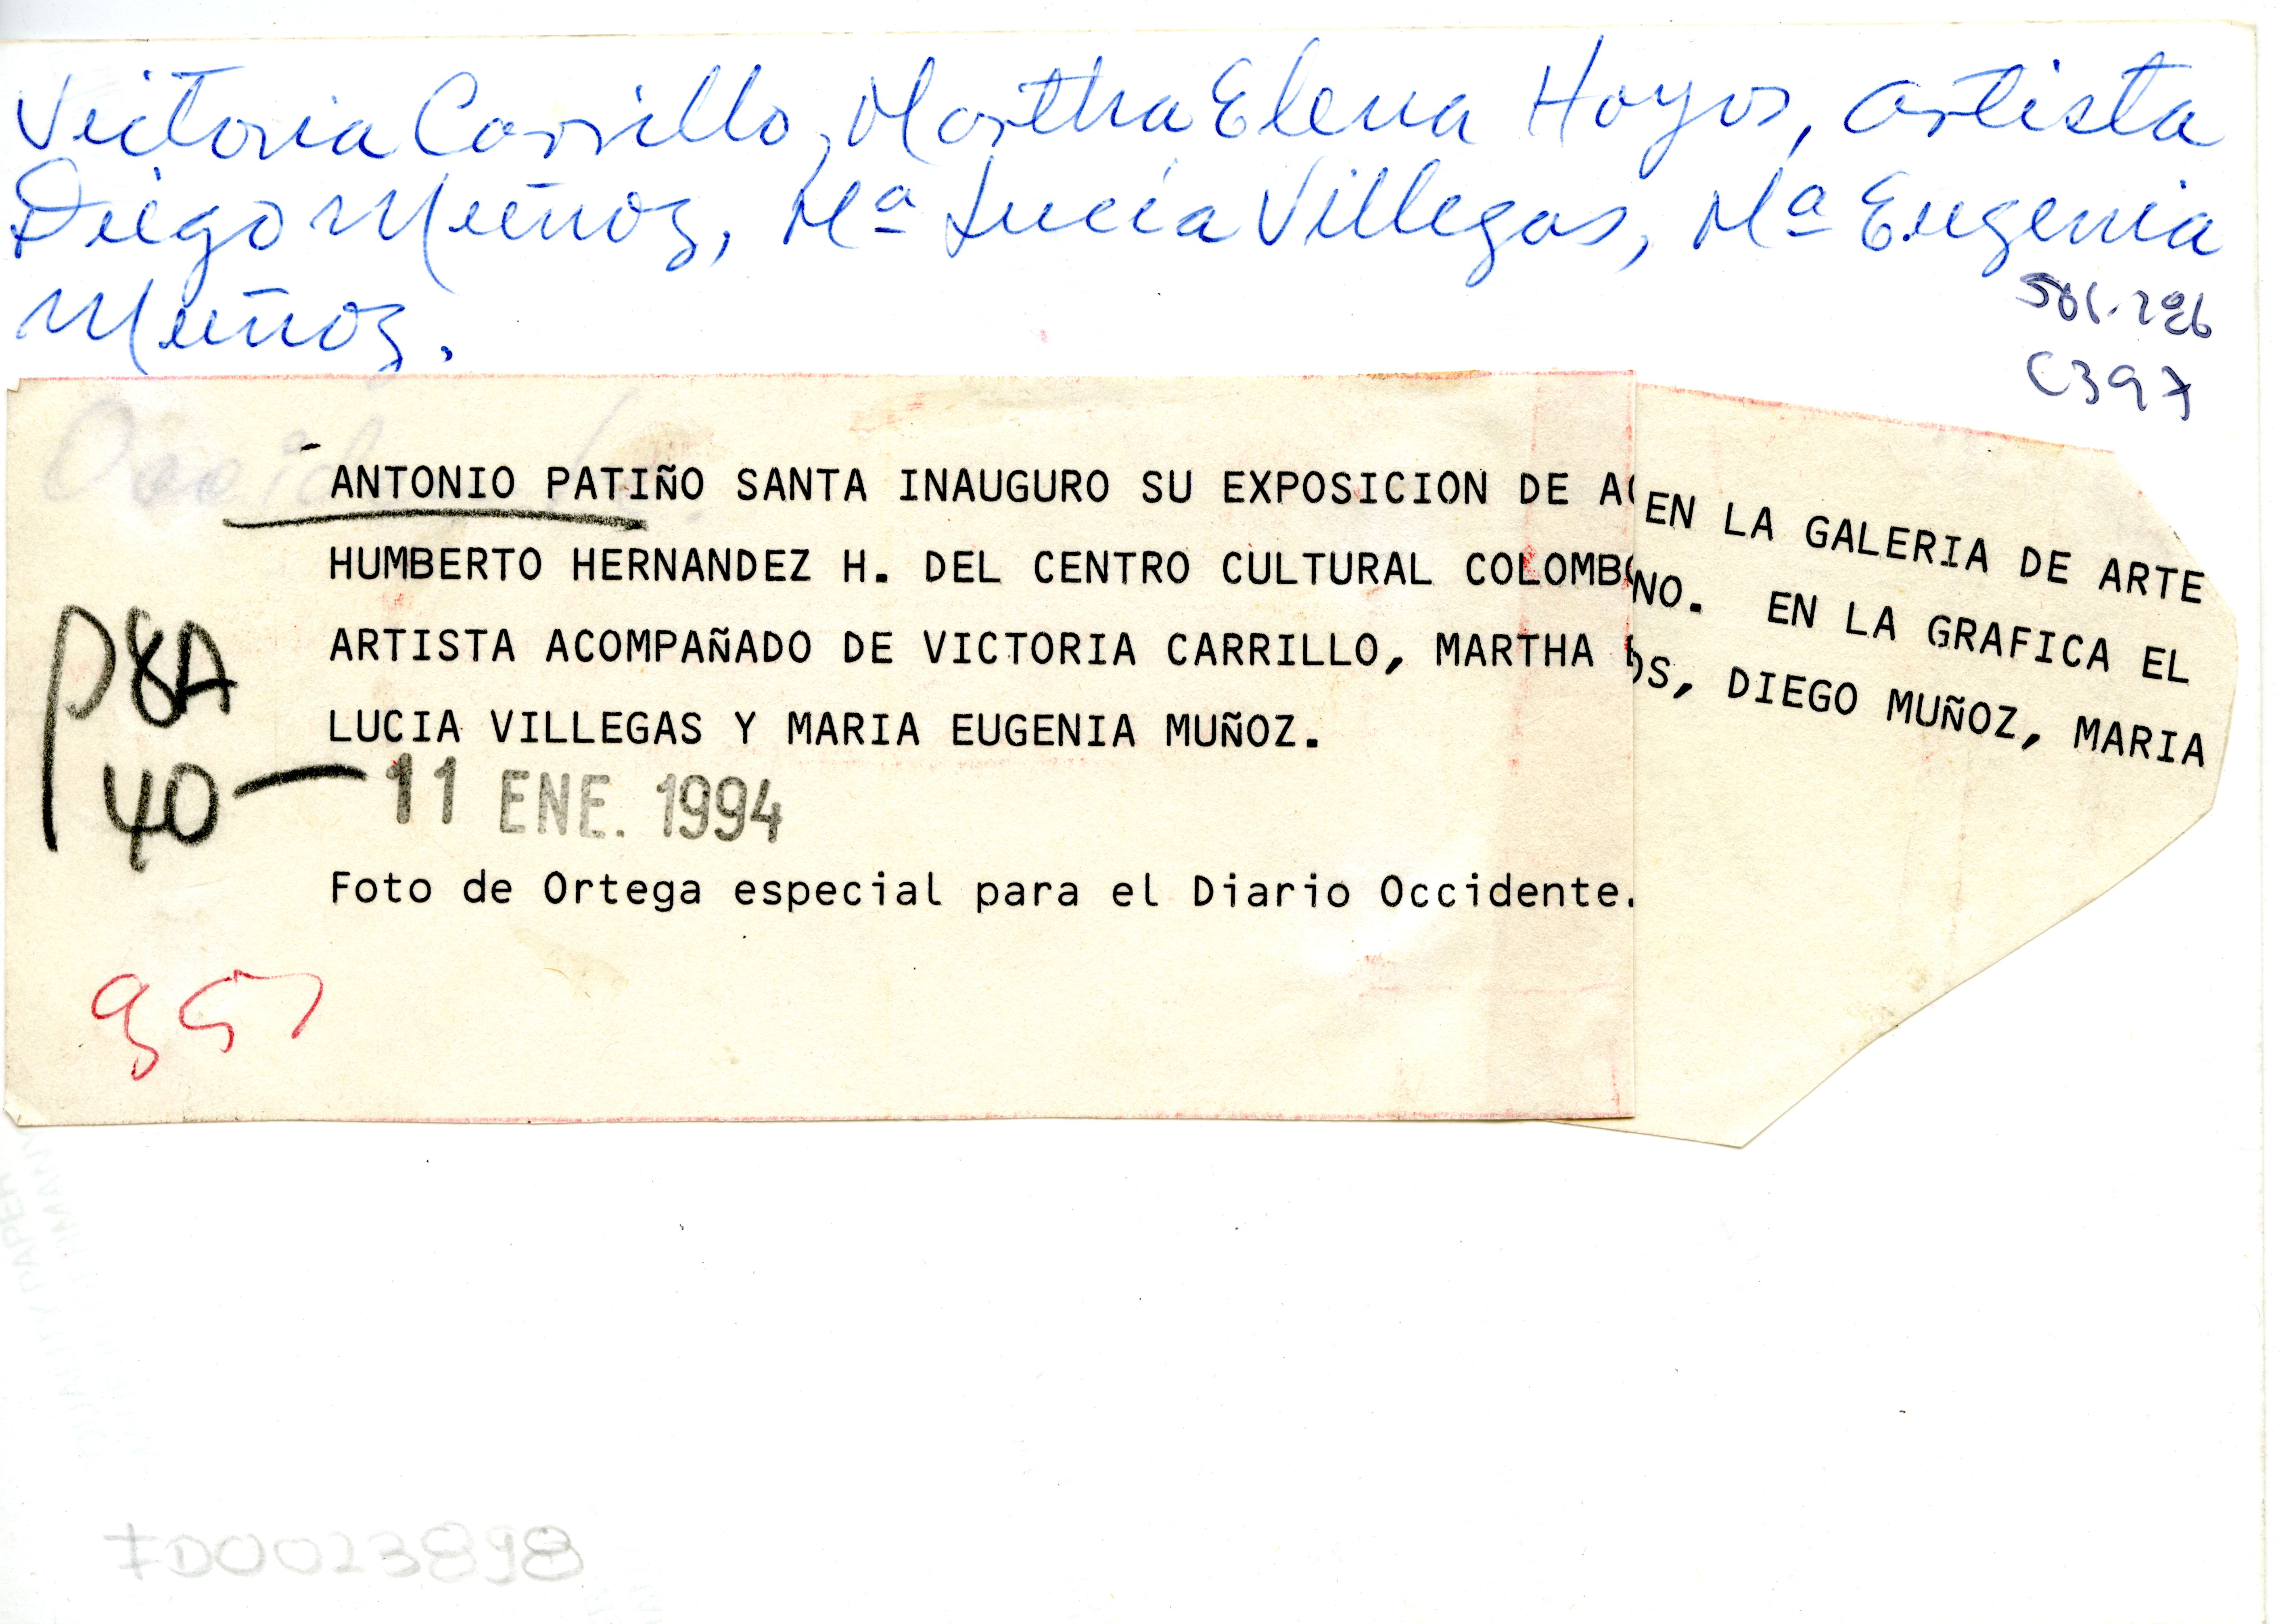 Victoria Carrillo, Martha Elena Hoyos, artista
Diego Muñoz, Mª Lucía Villegas, Mª Eugenia
Muñoz.
C397
ANTONIO PATIÑO SANTA INAUGURO SU EXPOSICION DE EN LA GALERIA DE ARTE
HUMBERTO HERNANDEZ H. DEL CENTRO CULTURAL COLOMBO NO. EN LA GRAFICA EL
ARTISTA ACOMPAÑADO DE VICTORIA CARRILLO, MARTHA OS, DIEGO MUÑOZ, MARIA
LUCIA VILLEGAS Y MARIA EUGENIA MUÑOZ.
P8A
40 — 11 ENE. 1994
Foto de Ortega especial para el Diario Occidente.
957
FD0023898